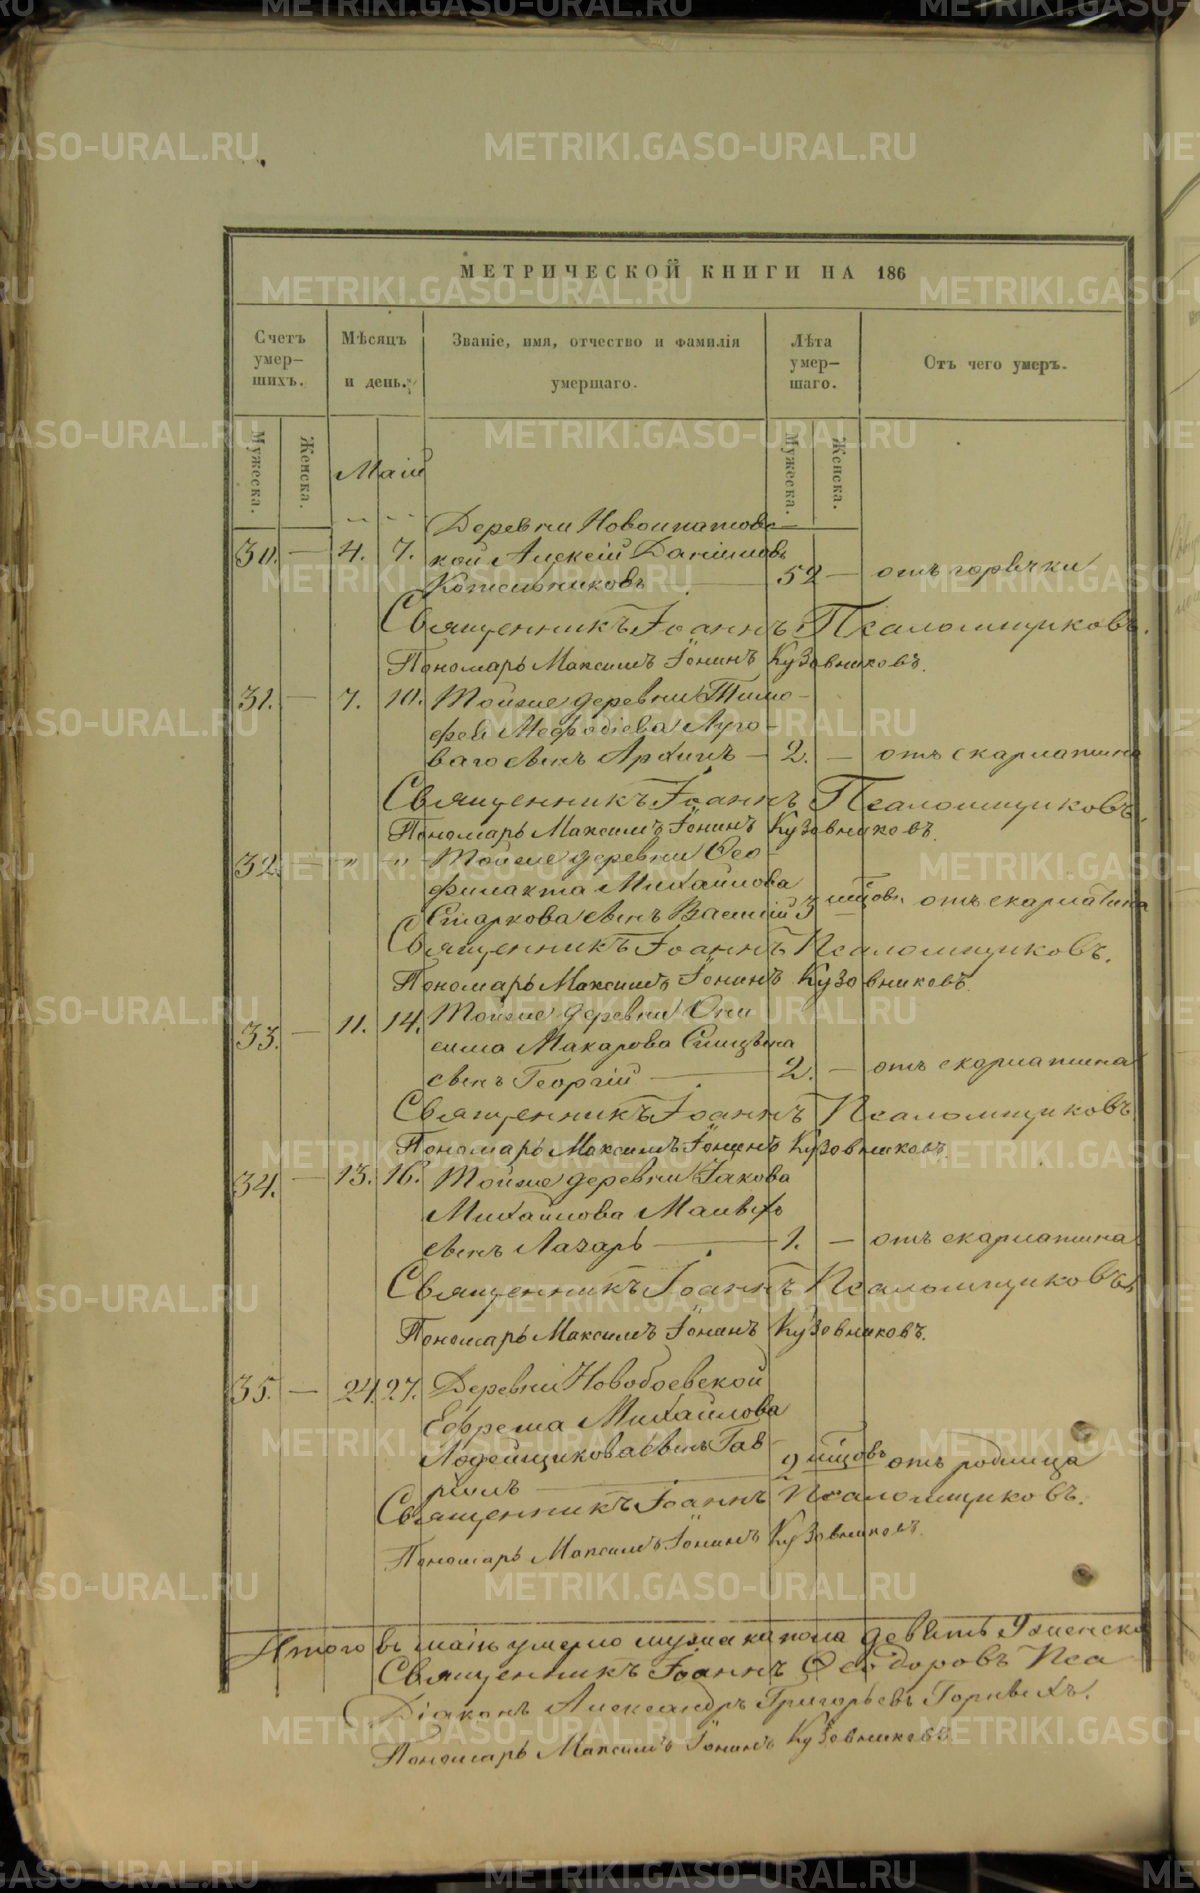 МЕТРИЧЕСКОЙ КНИГИ НА 186
Счетъ умер-шихъ.
Мѣсяцъ и день.
Званіе, имя, отчество и фамилія умершаго.
Лѣта умер-шаго.
Отъ чего умеръ.
Мужеска.
Женска.
Мужеска.
Женска.
Маій
Деревни Новоипатовс-
30. — 4. 7. кой Алексій Даніиловъ
Котельниковъ — 52 — отъ горячки
Священникъ Іоаннъ Псаломщиковъ.
Пономарь Максимъ Іонинъ Кузовниковъ.
31. — 7. 10. Тойже деревни Тимо-
фей Меѳодіева Луго-
ваго сынъ Архипъ — 2. — отъ скарлатина
Священникъ Іоаннъ Псаломщиковъ.
Пономарь Максимъ Іонинъ Кузовниковъ.
32. — " " Тойже деревни Ѳео-
филакта Михайлова
Старкова сынъ Василій 3 мѣсцовъ отъ скарлатина
Священникъ Іоаннъ Псаломщиковъ.
Пономарь Максимъ Іонинъ Кузовниковъ.
33. — 11. 14. Тойже деревни Они
сима Макарова Спицына
сынъ Георгій — 2. — отъ скарлатина
Священникъ Іоаннъ Псаломщиковъ
Пономарь Максимъ Іонинъ Кузовниковъ.
34. — 13. 16. Тойже деревни Іакова
Михайлова Малыхъ
сынъ Лазарь — 1. — отъ скарлатина
Священникъ Іоаннъ Псаломщиковъ
Пономарь Максимъ Іонинъ Кузовниковъ.
35. — 24. 27. Деревни Новобоевской
Ефрема Михайлова
Лодейщикова сынъ Гав-
ріилъ — 2 мѣсцовъ отъ родимца
Священникъ Іоаннъ Псаломщиковъ.
Пономарь Максимъ Іонинъ Кузовниковъ.
Итого въ маіѣ умерло мужеска пола девять Женска
Священникъ Іоаннъ Ѳеодоровъ Пса
Діаконъ Александръ Григорьевъ Горныхъ.
Пономарь Максимъ Іонинъ Кузовниковъ
METRIKI.GASO-URAL.RU